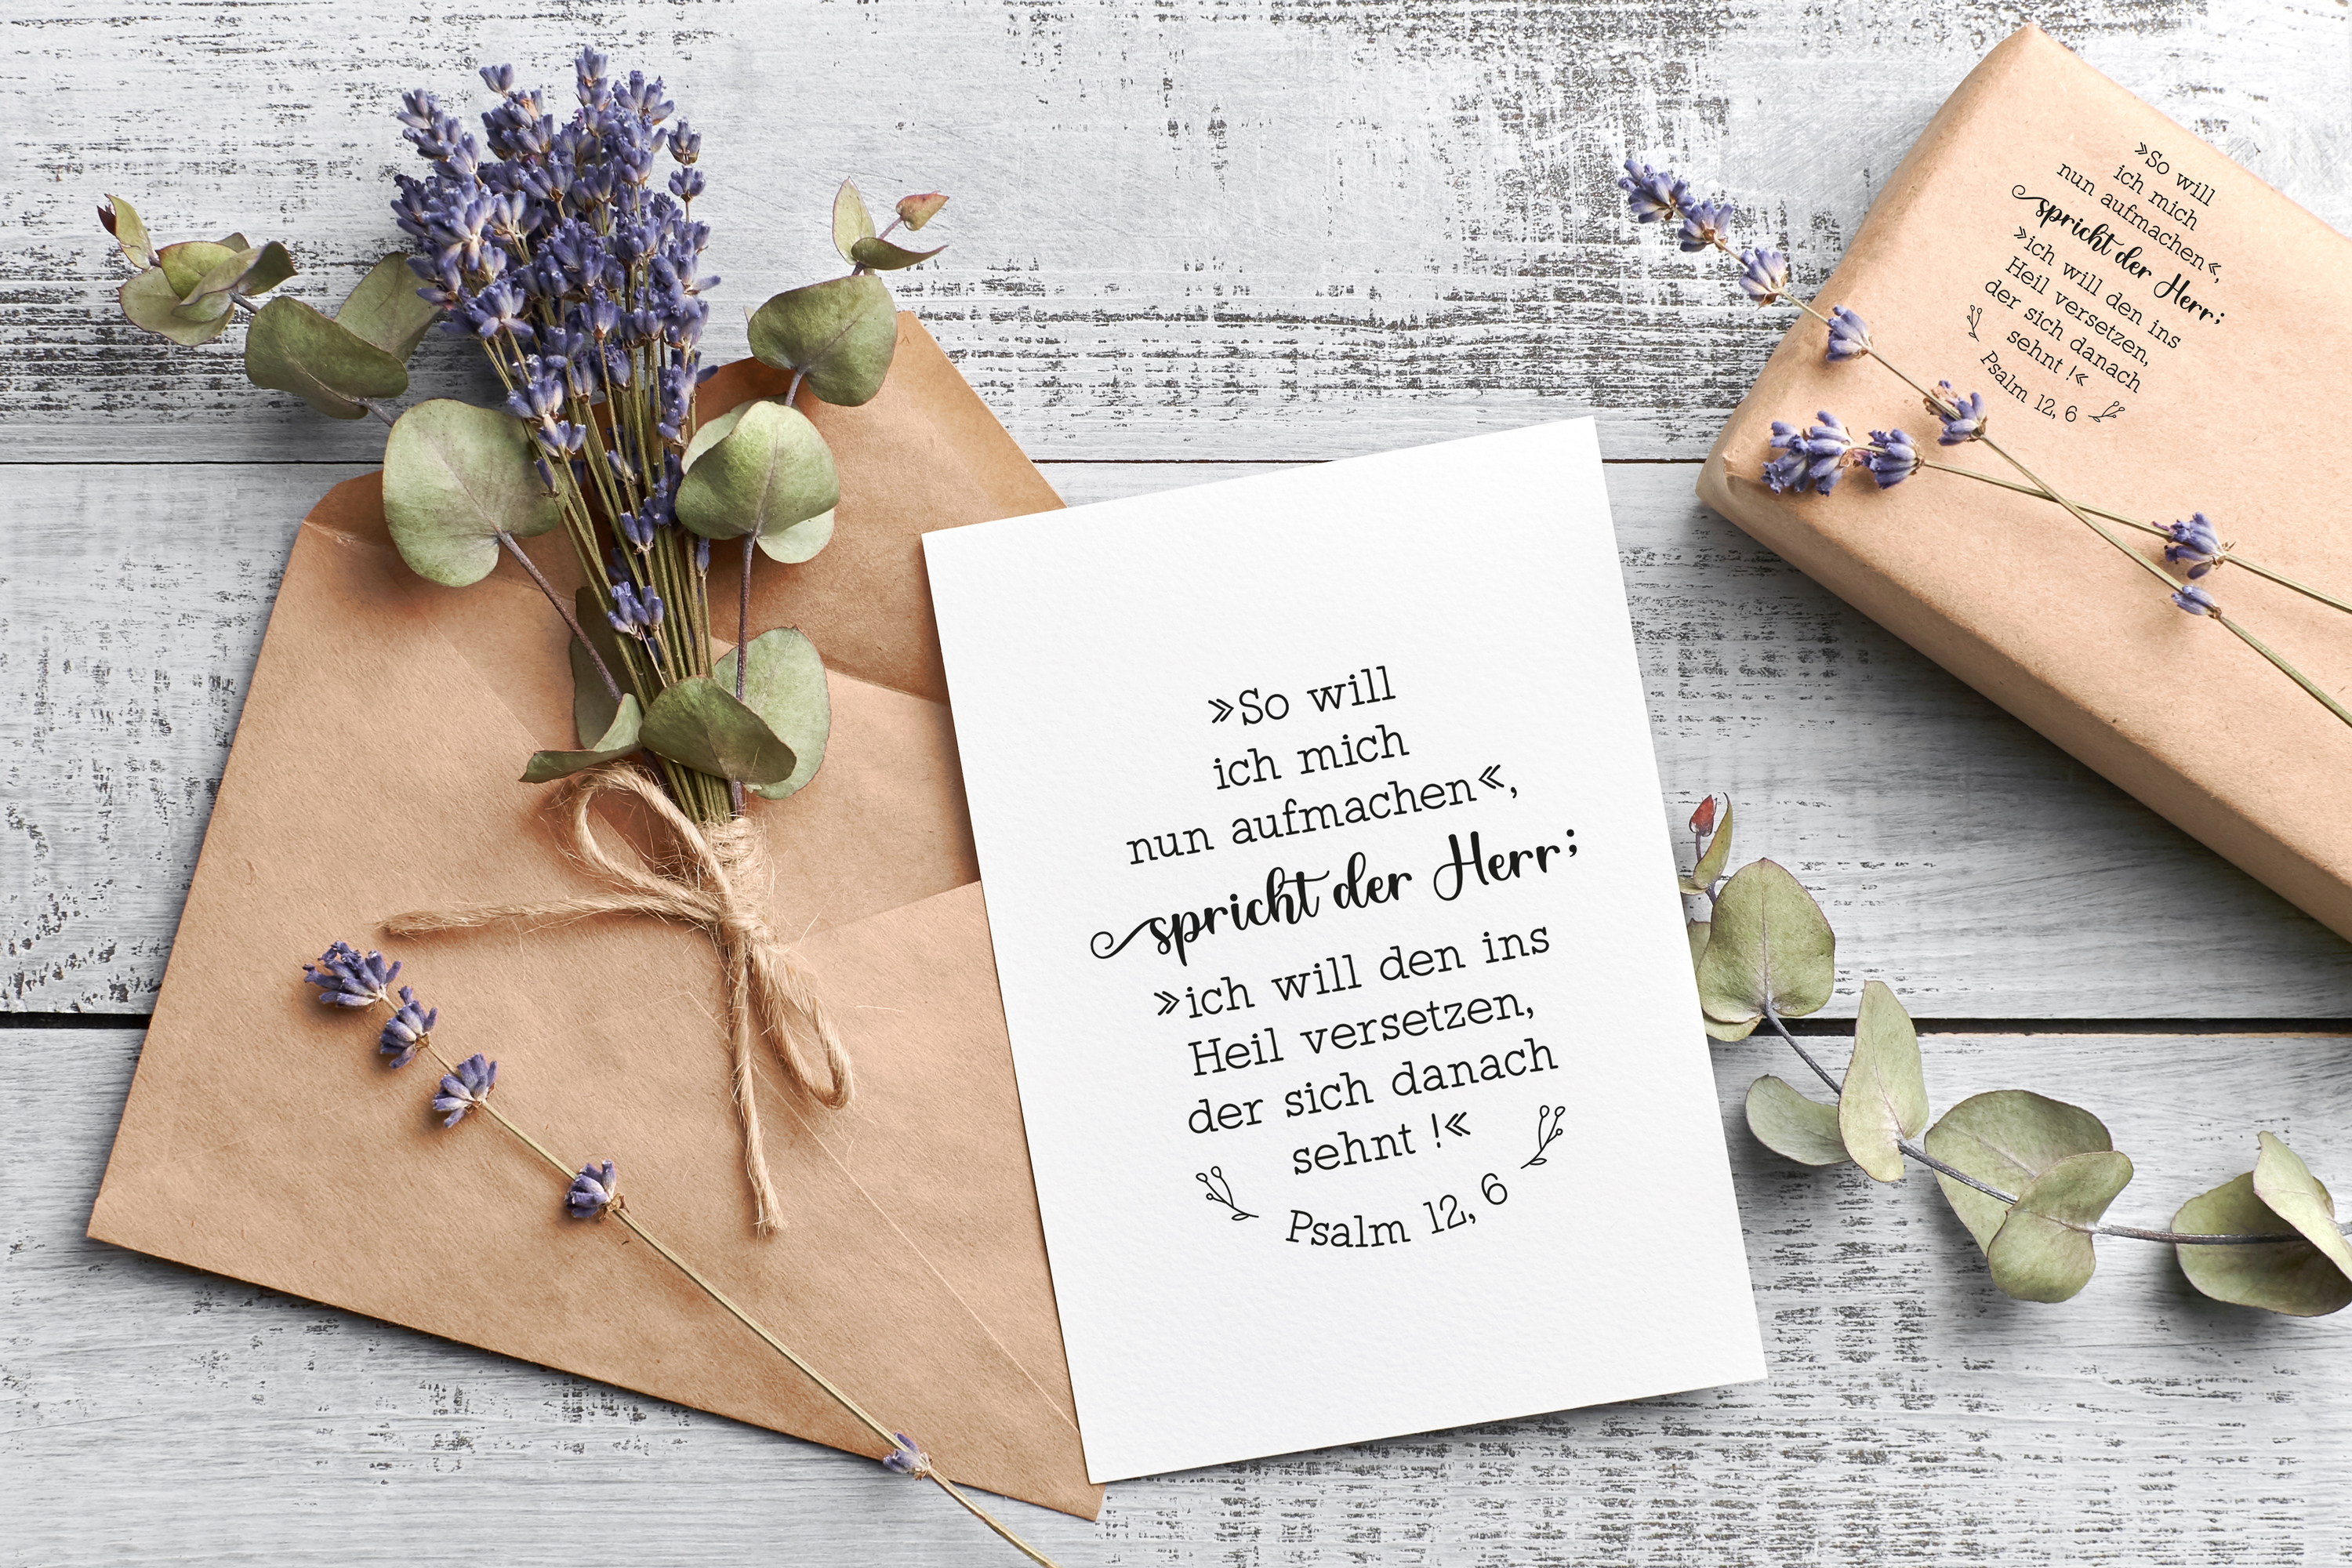 »So will
ich mich
nun aufmachen«,
spricht der Herr;
»ich will den ins
Heil versetzen,
der sich danach
sehnt !«
Psalm 12, 6
»So will
ich mich
nun aufmachen«,
spricht der Herr;
»ich will den ins
Heil versetzen,
der sich danach
sehnt !«
Psalm 12, 6